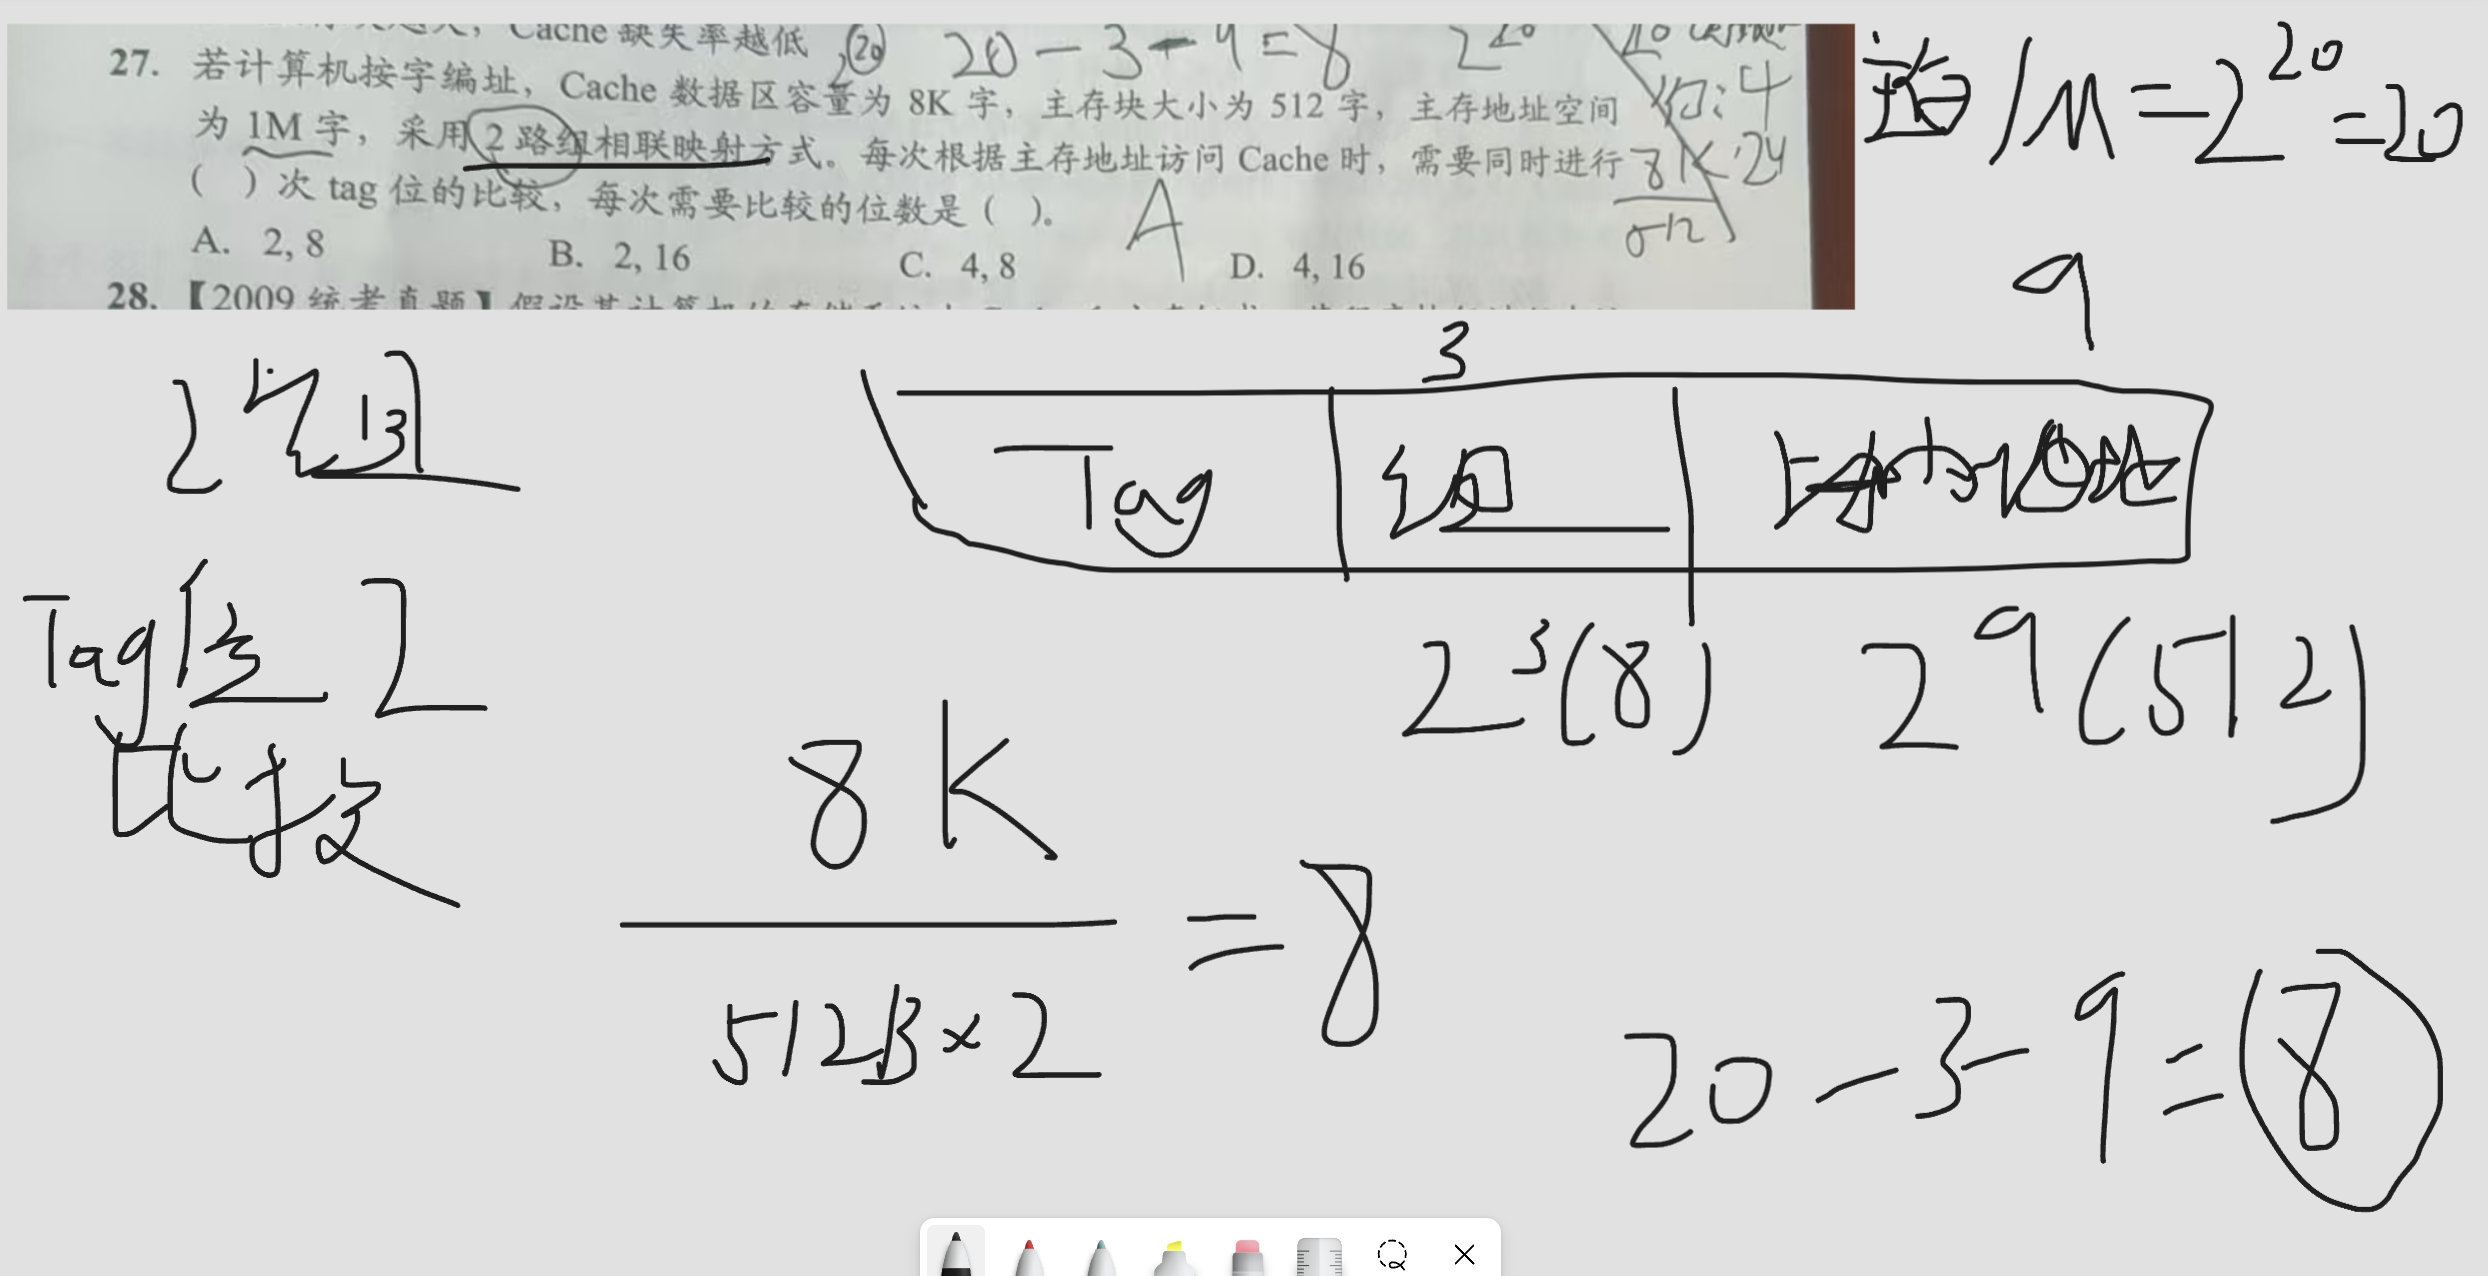 Cache 缺失率越低
20-3-9=8
2^20
27. 若计算机按字编址，Cache 数据区容量为 8K 字，主存块大小为 512 字，主存地址空间
为 1M 字，采用 2 路组相联映射方式。每次根据主存地址访问 Cache 时，需要同时进行
( ) 次 tag 位的比较，每次需要比较的位数是 ( )。
A
8K
512
A. 2, 8
B. 2, 16
C. 4, 8
D. 4, 16
28. 【2009 统考真题】
1M=2^20=20
9
3
Tag
组
2^3(8)
2^9(512)
Tag位
2
比较
8K
512B×2
=8
20-3-9=8